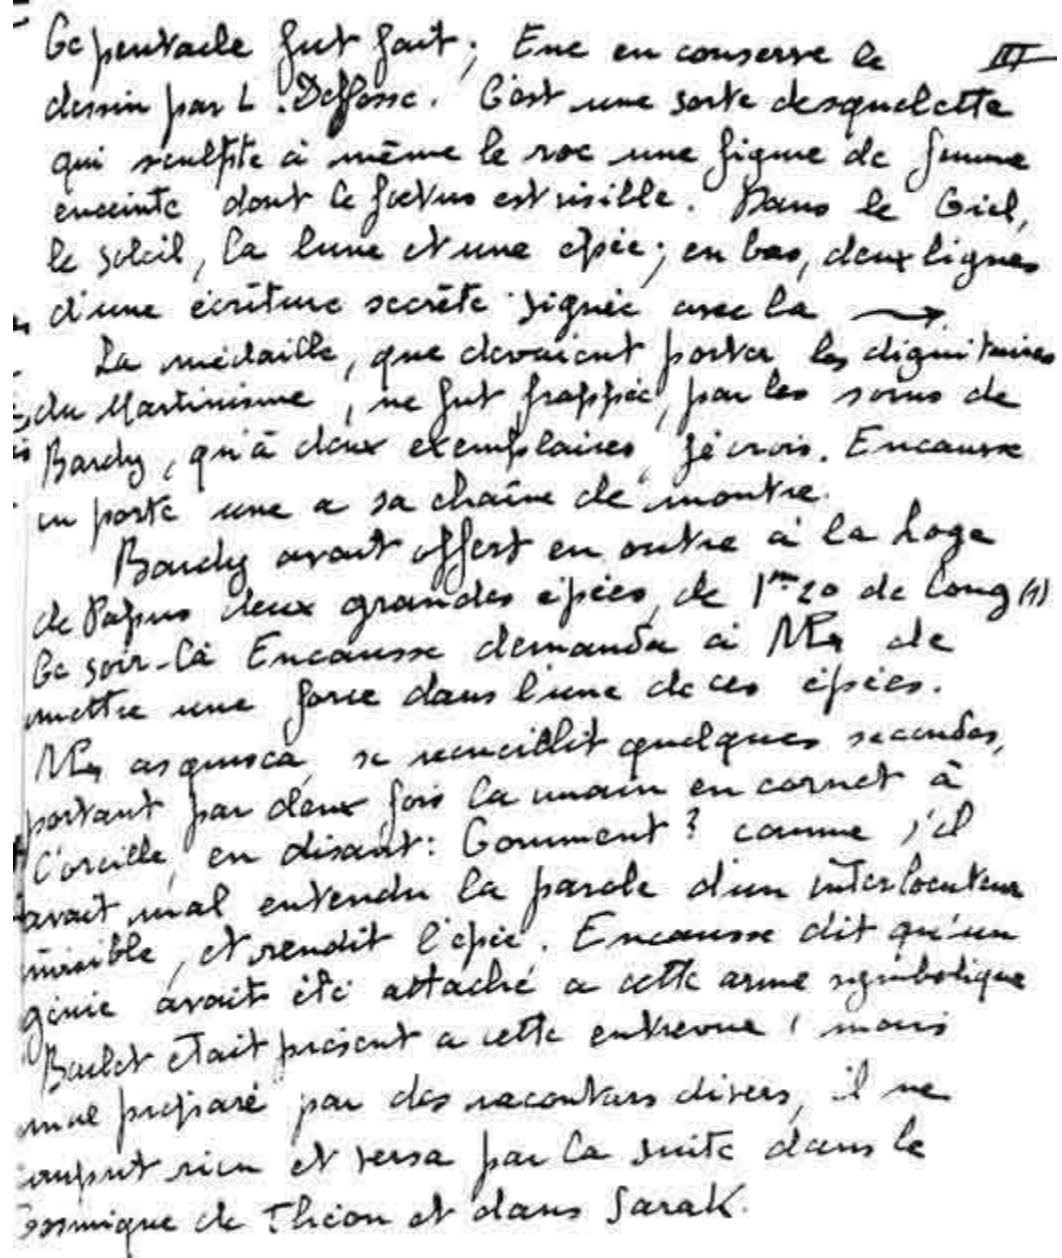 Ce pentacle fut fait ; Enc en conserve le III
dessin par L. Delfosse. C'est une sorte de squelette
qui sculpte à même le roc une figure de femme
enceinte dont le foetus est visible. Dans le Ciel,
le soleil, la lune et une épée ; en bas, deux lignes
d'une écriture secrète signée avec la →
La médaille, que devaient porter les dignitaires
du Martinisme, ne fut frappée, par les soins de
Bardy, qu'à deux exemplaires, je crois. Encausse
en porte une a sa chaîne de montre.
Bardy avait offert en outre à la Loge
de Papus deux grandes épées, de 1m20 de long (1)
Ce soir-là Encausse demanda à de
mettre une force dans l'une de ces épées.
acquiesça, se recueillit quelques secondes,
portant par deux fois la main en cornet à
l'oreille, en disant : Comment ? comme s'il
avait mal entendu la parole d'un interlocuteur
invisible, et rendit l'épée. Encausse dit qu'un
génie avait été attaché a cette arme symbolique
Barlet était présent a cette entrevue ; mais
mal préparé par des racontars divers, il ne
comprit rien et versa par la suite dans le
cosmique de Théon et dans Sarak.